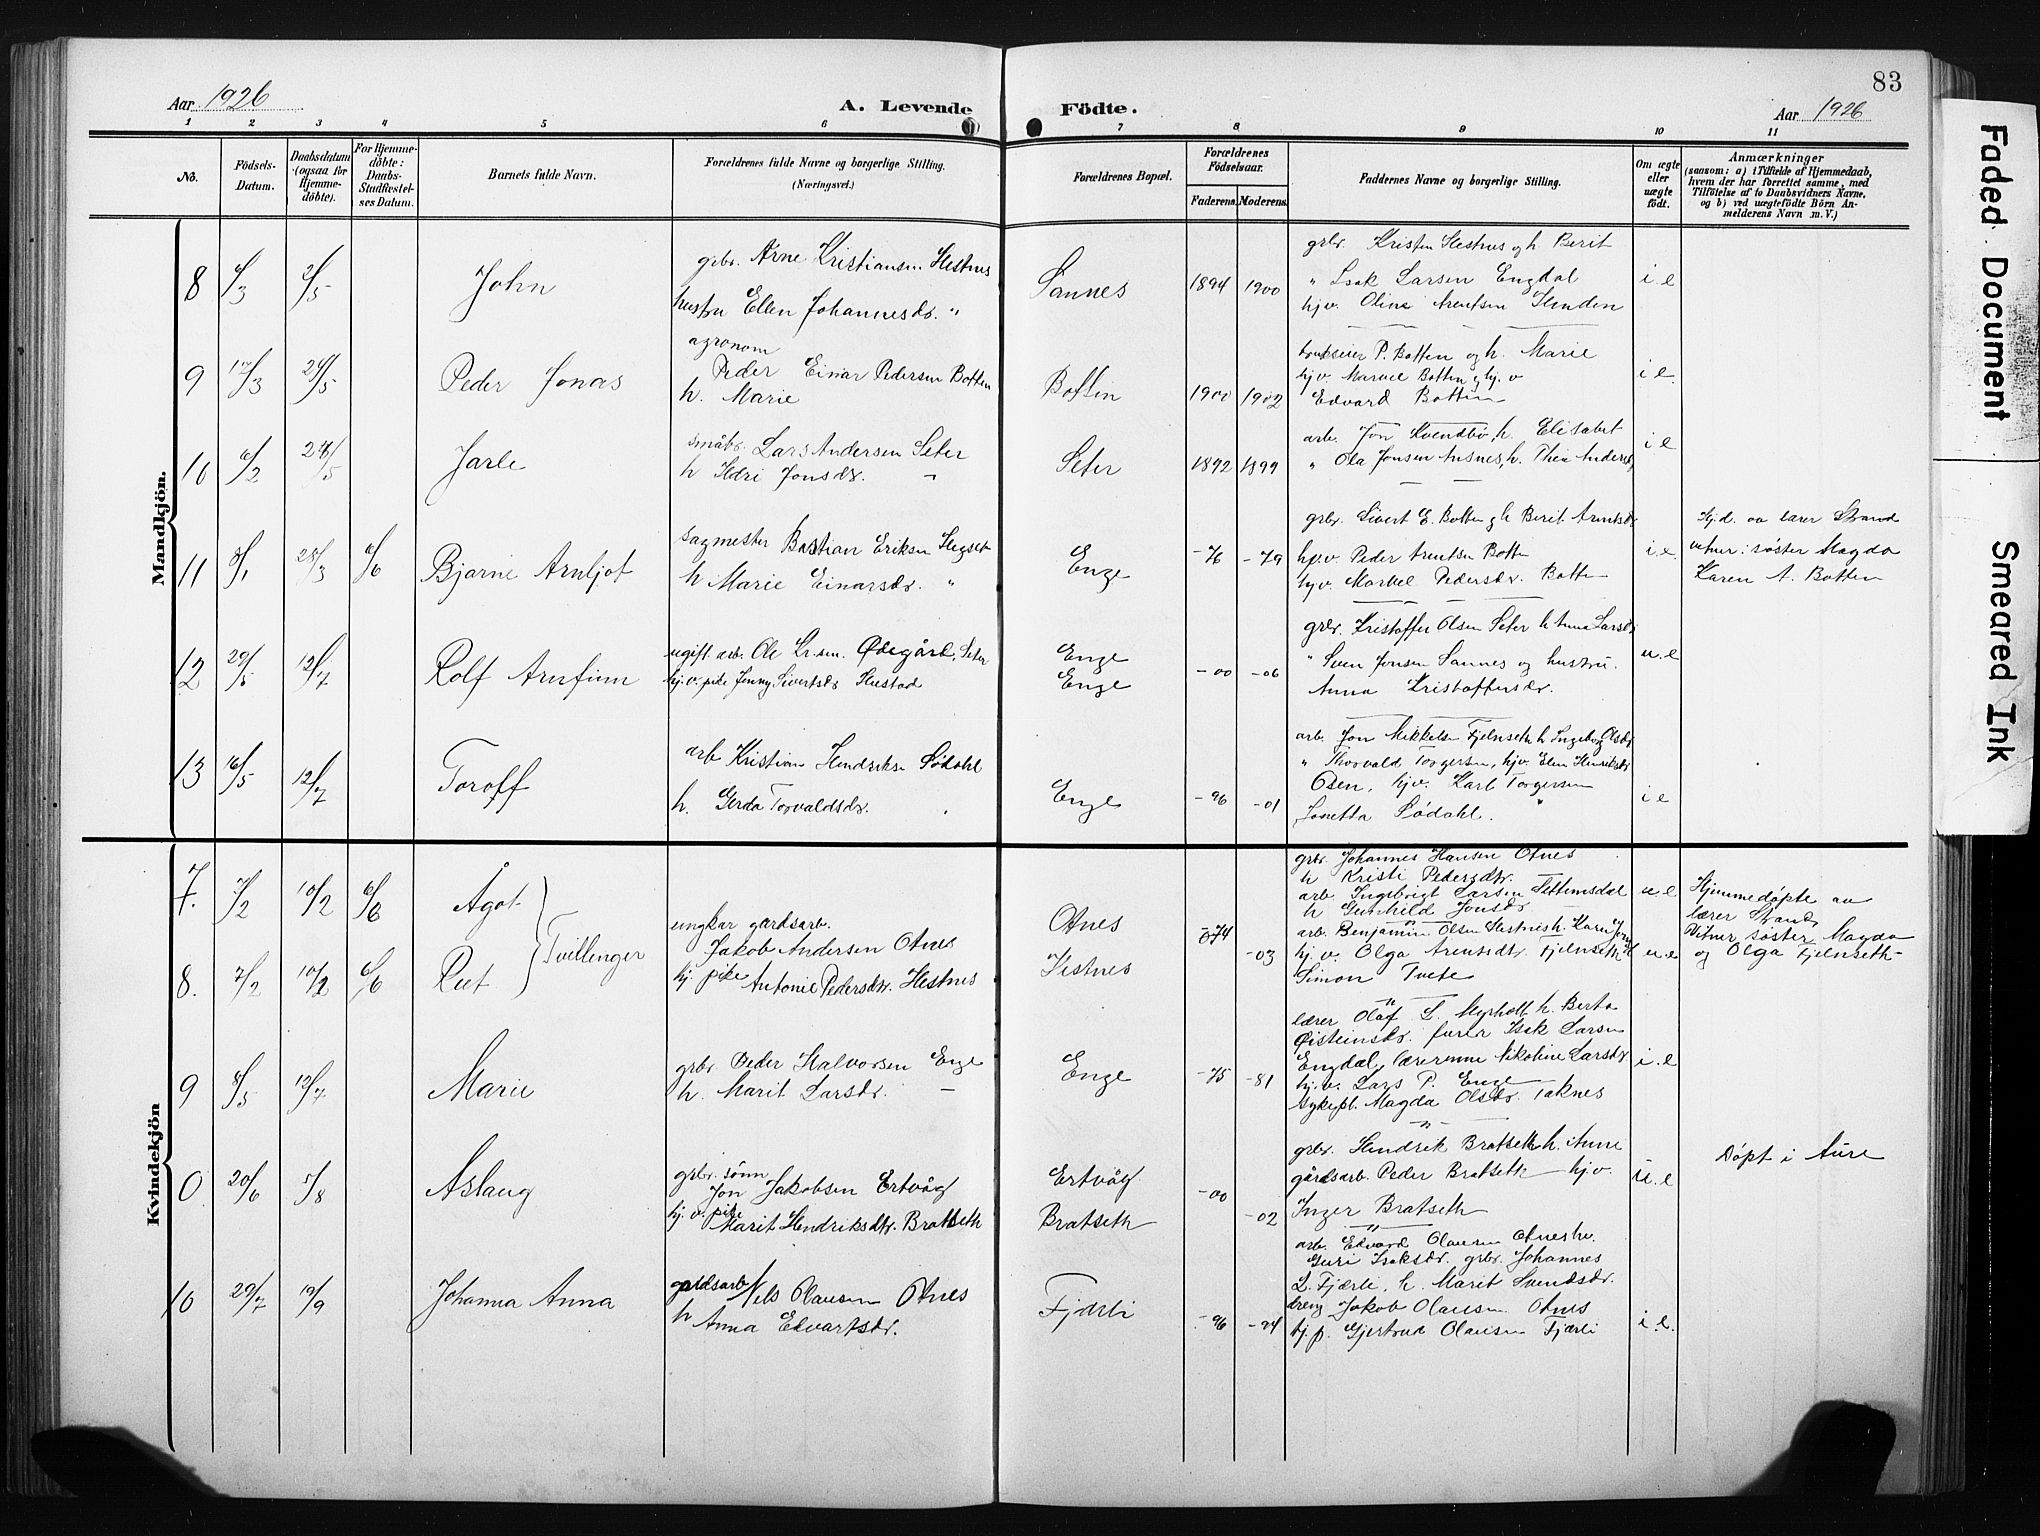 83
Aar 1926
A. Levende Födte.
Aar 1926
1 2 3 4 5 6 7 8 9 10 11
No.
Födsels-Datum.
Daabsdatum (ogsaa for Hjemme-döbte).
For Hjemme-döbte: Daabs-Stadfæstel-ses Datum.
Barnets fulde Navn.
Forældrenes fulde Navne og borgerlige Stilling.
(Næringsvei.)
Forældrenes Bopæl.
Forældrenes Födselsaar.
Faderens. Moderens.
Faddernes Navne og borgerlige Stilling.
Om ægte eller uægte födt.
Anmærkninger
(saasom: a) i Tilfælde af Hjemmedaab,
hvem der har forrettet samme, med
Tilföielse af to Daabsvidners Navne,
og b) ved uægtefödte Börn An-
melderens Navn m. V.)
Mandkjön.
8 4/3 2/5 John
grbr. Arne Kristiansen Hestnes
hustru Ellen Johannesdr. "
Sannes 1894 1900
grbr Kristen Hestnes og h Berit
" Isak Larsen Engdal
hjv. Oline Arentsen Henden
i e
9 17/3 24/5 Peder Jonas
agronom
Peder Einar Pedersen Botten
h. Marie
Botten 1900 1902
brukseier P. Botten og h. Marie
hjv. Marvel Botten, hj. v
Edvard Botten
i e
10 6/2 24/5 Jarle
småbr. Lars Andersen Seter
h Hdri Jonsdr. "
Seter 1892 1899
arb. Jon Kvendbø, h. Elisabet
" Ola Jonsen Ausnes, h. Thea Andersd
i e
11 8/1 28/3 6/6 Bjarne Arnljot
sagmester Bastian Eriksen Hegset
h Marie Einarsdr. "
Enge -76 -79
grbr. Sivert E. Botten og h Berit Arntsdr
hjv. Peder Arentsen Botten
hjv. Marvel Pedersdr. Botten
i e
Hjd. av lærer Strand
vitner: søster Magda
Karen A. Botten
12 29/5 12/7 Rolf Arnfinn
ugift. arb. Ole Kr.sen. Ødegård, Seter
hj.v. pike Jenny Sivertsdr Hustad
Enge
Enge
-00 -06
grbr. Kristoffer Olsen Seter h Anna Larsdr
" Sven Jonsen Sannes og hustru
Anna Kristoffersdr.
u. e
13 16/5 12/7 Toroff
arb Kristian Hendriksen Södahl
h. Gerda Torvaldsdr. "
Enge -96 -01
arb. Jon Mikkelsen Fjelnseth h Ingeborg Olsdr
" Thorvald Torgersen, hjv. Elen Henriksdr
Osen, hjv. Karl Torgersen
Jonetta Södahl.
i e
Kvindekjön
7. 7/2 10/2 6/6 Ågot
8. 7/2 10/2 6/6 Rut
Tvillenger
ungkar gardsarb.
Jakob Andersen Otnes
hj pike Antonie Pedersdr. Hestnes
Otnes
Hestnes
-74
-03
grbr. Johannes Hansen Otnes
h Kristi Pedersdtr.
arb. Ingebrigt Larsen Tettemsdal
h Gunhild Jonsdr
arb. Benjamin Olsen Hestnes h. Karen Jonsd
hj. v. Olga Arentsdr. Fjelnseth
Simon Tvete
u. e
u e
Hjemmedøpte av
lærer Strand
Vitner søster Magda
og Olga Fjelnseth-
9 8/5 12/7 Marie
grbr. Peder Halvorsen Enge
h. Marit Larsdr. "
Enge -75 -81
lærer Olaf S. Myrholt h. Berta
Øisteinsdr. furer Isak Larsen
Engdal, lærerinne Nikoline Larsdr.
hj.v. Lars P. Enge
sykepl. Magda Olsdr. Taknes
i. e
0 20/6 5/8 Aslaug
grbr. sönn
Jon Jakobsen Ertvåg
hj. v. pike
Marit Hendriksdtr. Bratseth
Ertvåg
Bratseth
-00
-02
grbr. Hendrik Bratseth h. Anne
gårdsarb. Peder Bratseth hj.v.
Inger Bratseth
u. e
Döpt i Aure
10 29/7 19/9 Johanna Anna
gardsarb Nils Olausen Otnes
h Anna Edvartsdr.
Fjærli -96 -94
arb. Edvard Olausen Otnes hv.
Guri Isaksdr. grbr. Johannes
L. Fjærli, h. Marit Svendsdr.
dreng Jakob Olausen Otnes
hj. p. Gjertrud Olausen Fjærli
i. e.
Faded Document
Smeared Ink